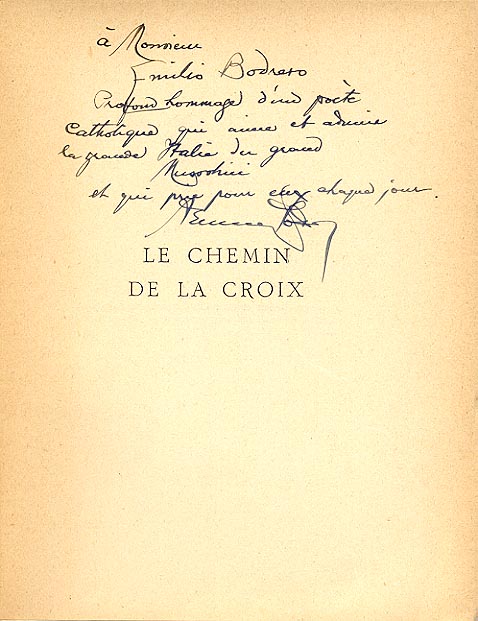 à Monsieur
Emilio Bodrero
Profond hommage d'un poète
Catholique qui aime et admire
la grande Italie du grand
Mussolini
et qui prie pour eux chaque jour.
LE CHEMIN
DE LA CROIX